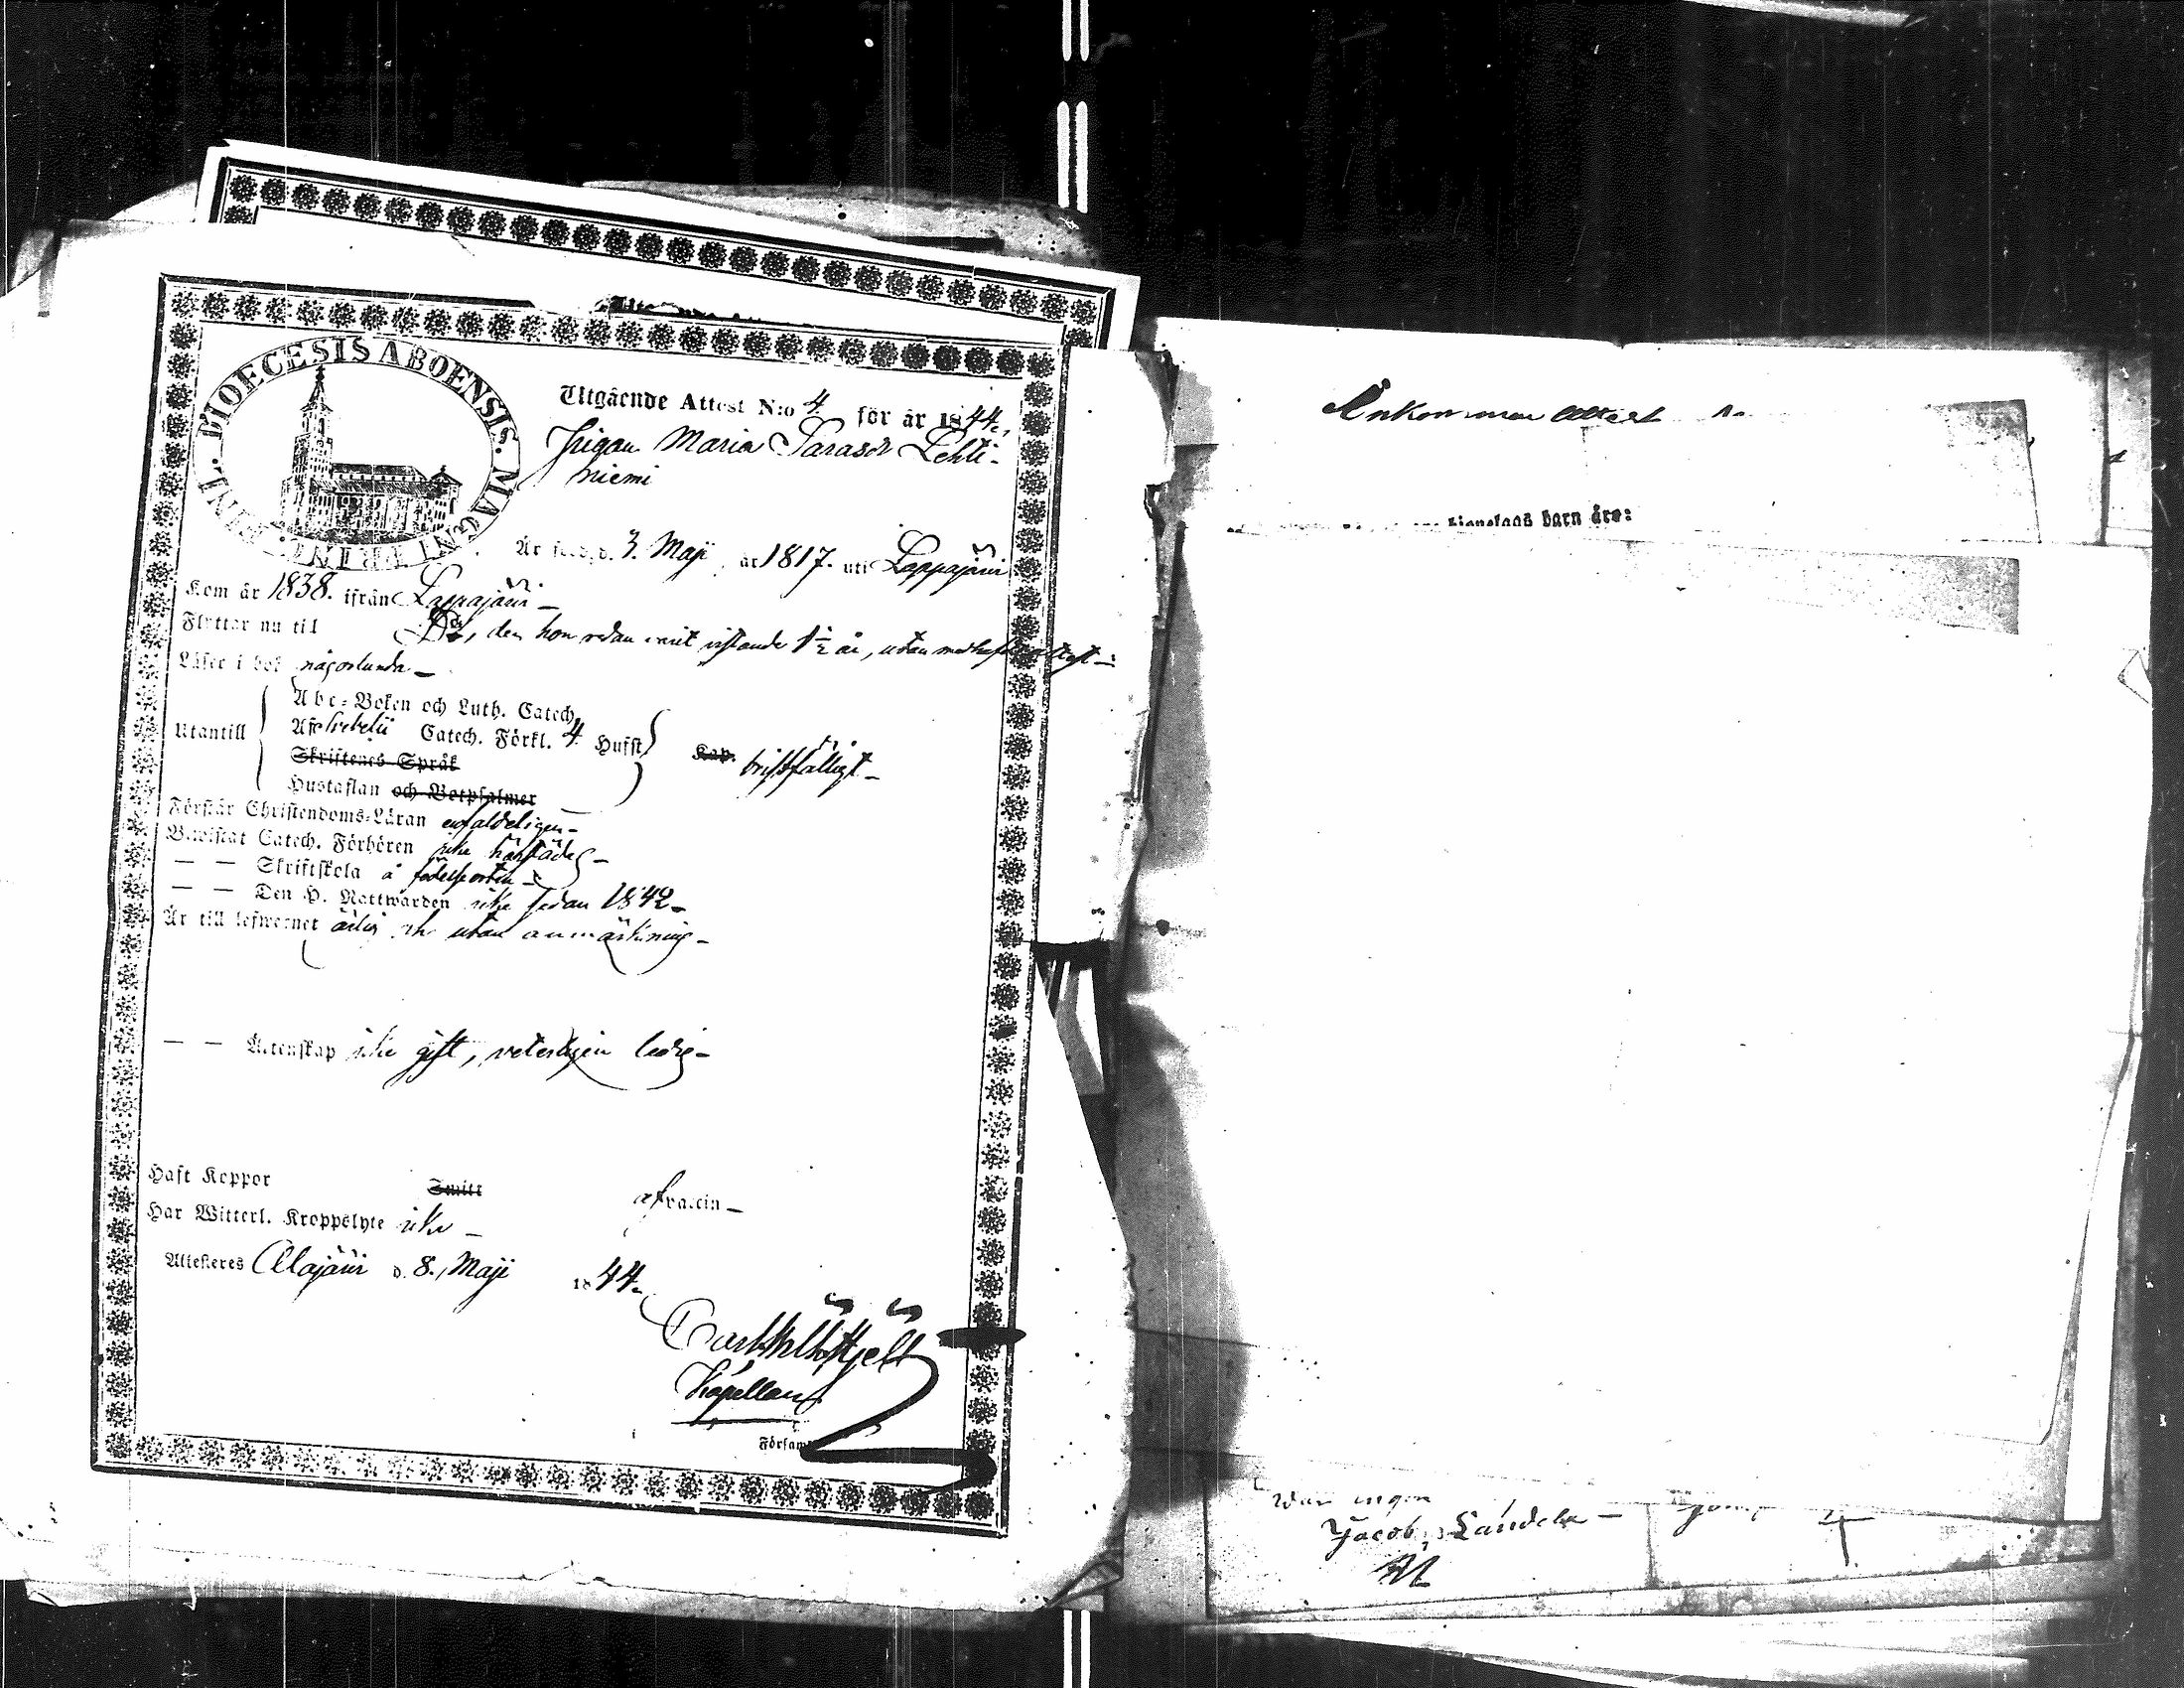 DIOECESIS ABOENSIS. MAGNI PRINC. FINL.
Utgående Attest N:o 4. för år 1844.,
Pigan Maria Sarasdr Lehti-
niemi
Är född d. 3. Maji, år 1817. uti Lappajärvi
Kom år 1838. ifrån Lappajärvi -
Flyttar nu til D:o, der hon redan varit vistande 1½ år, utan attest -
Läser i bok någorlunda -
Utantill
Abc-Boken och Luth. Catech.
Afs Svebelii Catech. Förkl. 4. Hufst.
Kap. bristfälligt -
Skriftenes Språk
Hustaflan och Botpsalmer
Förstår Christendoms-Läran enfaldeligen -
Bewistat Catech. Förhören icke härstädes -
— — Skriftskola å födelseorten -
— — Den H. Nattwarden icke sedan 1842 -
Är till lefwernet ärlig och utan anmärkning -
— — Äktenskap icke gift, veterligen ledig -
Haft Koppor Smitt af vaccin -
Har Witterl. Kroppslyte icke -
Attesteres Alajärvi d. 8. Maji 1844.
Kapellan
Församl
Ankommen attest
barn äro:
ingen
Jacob